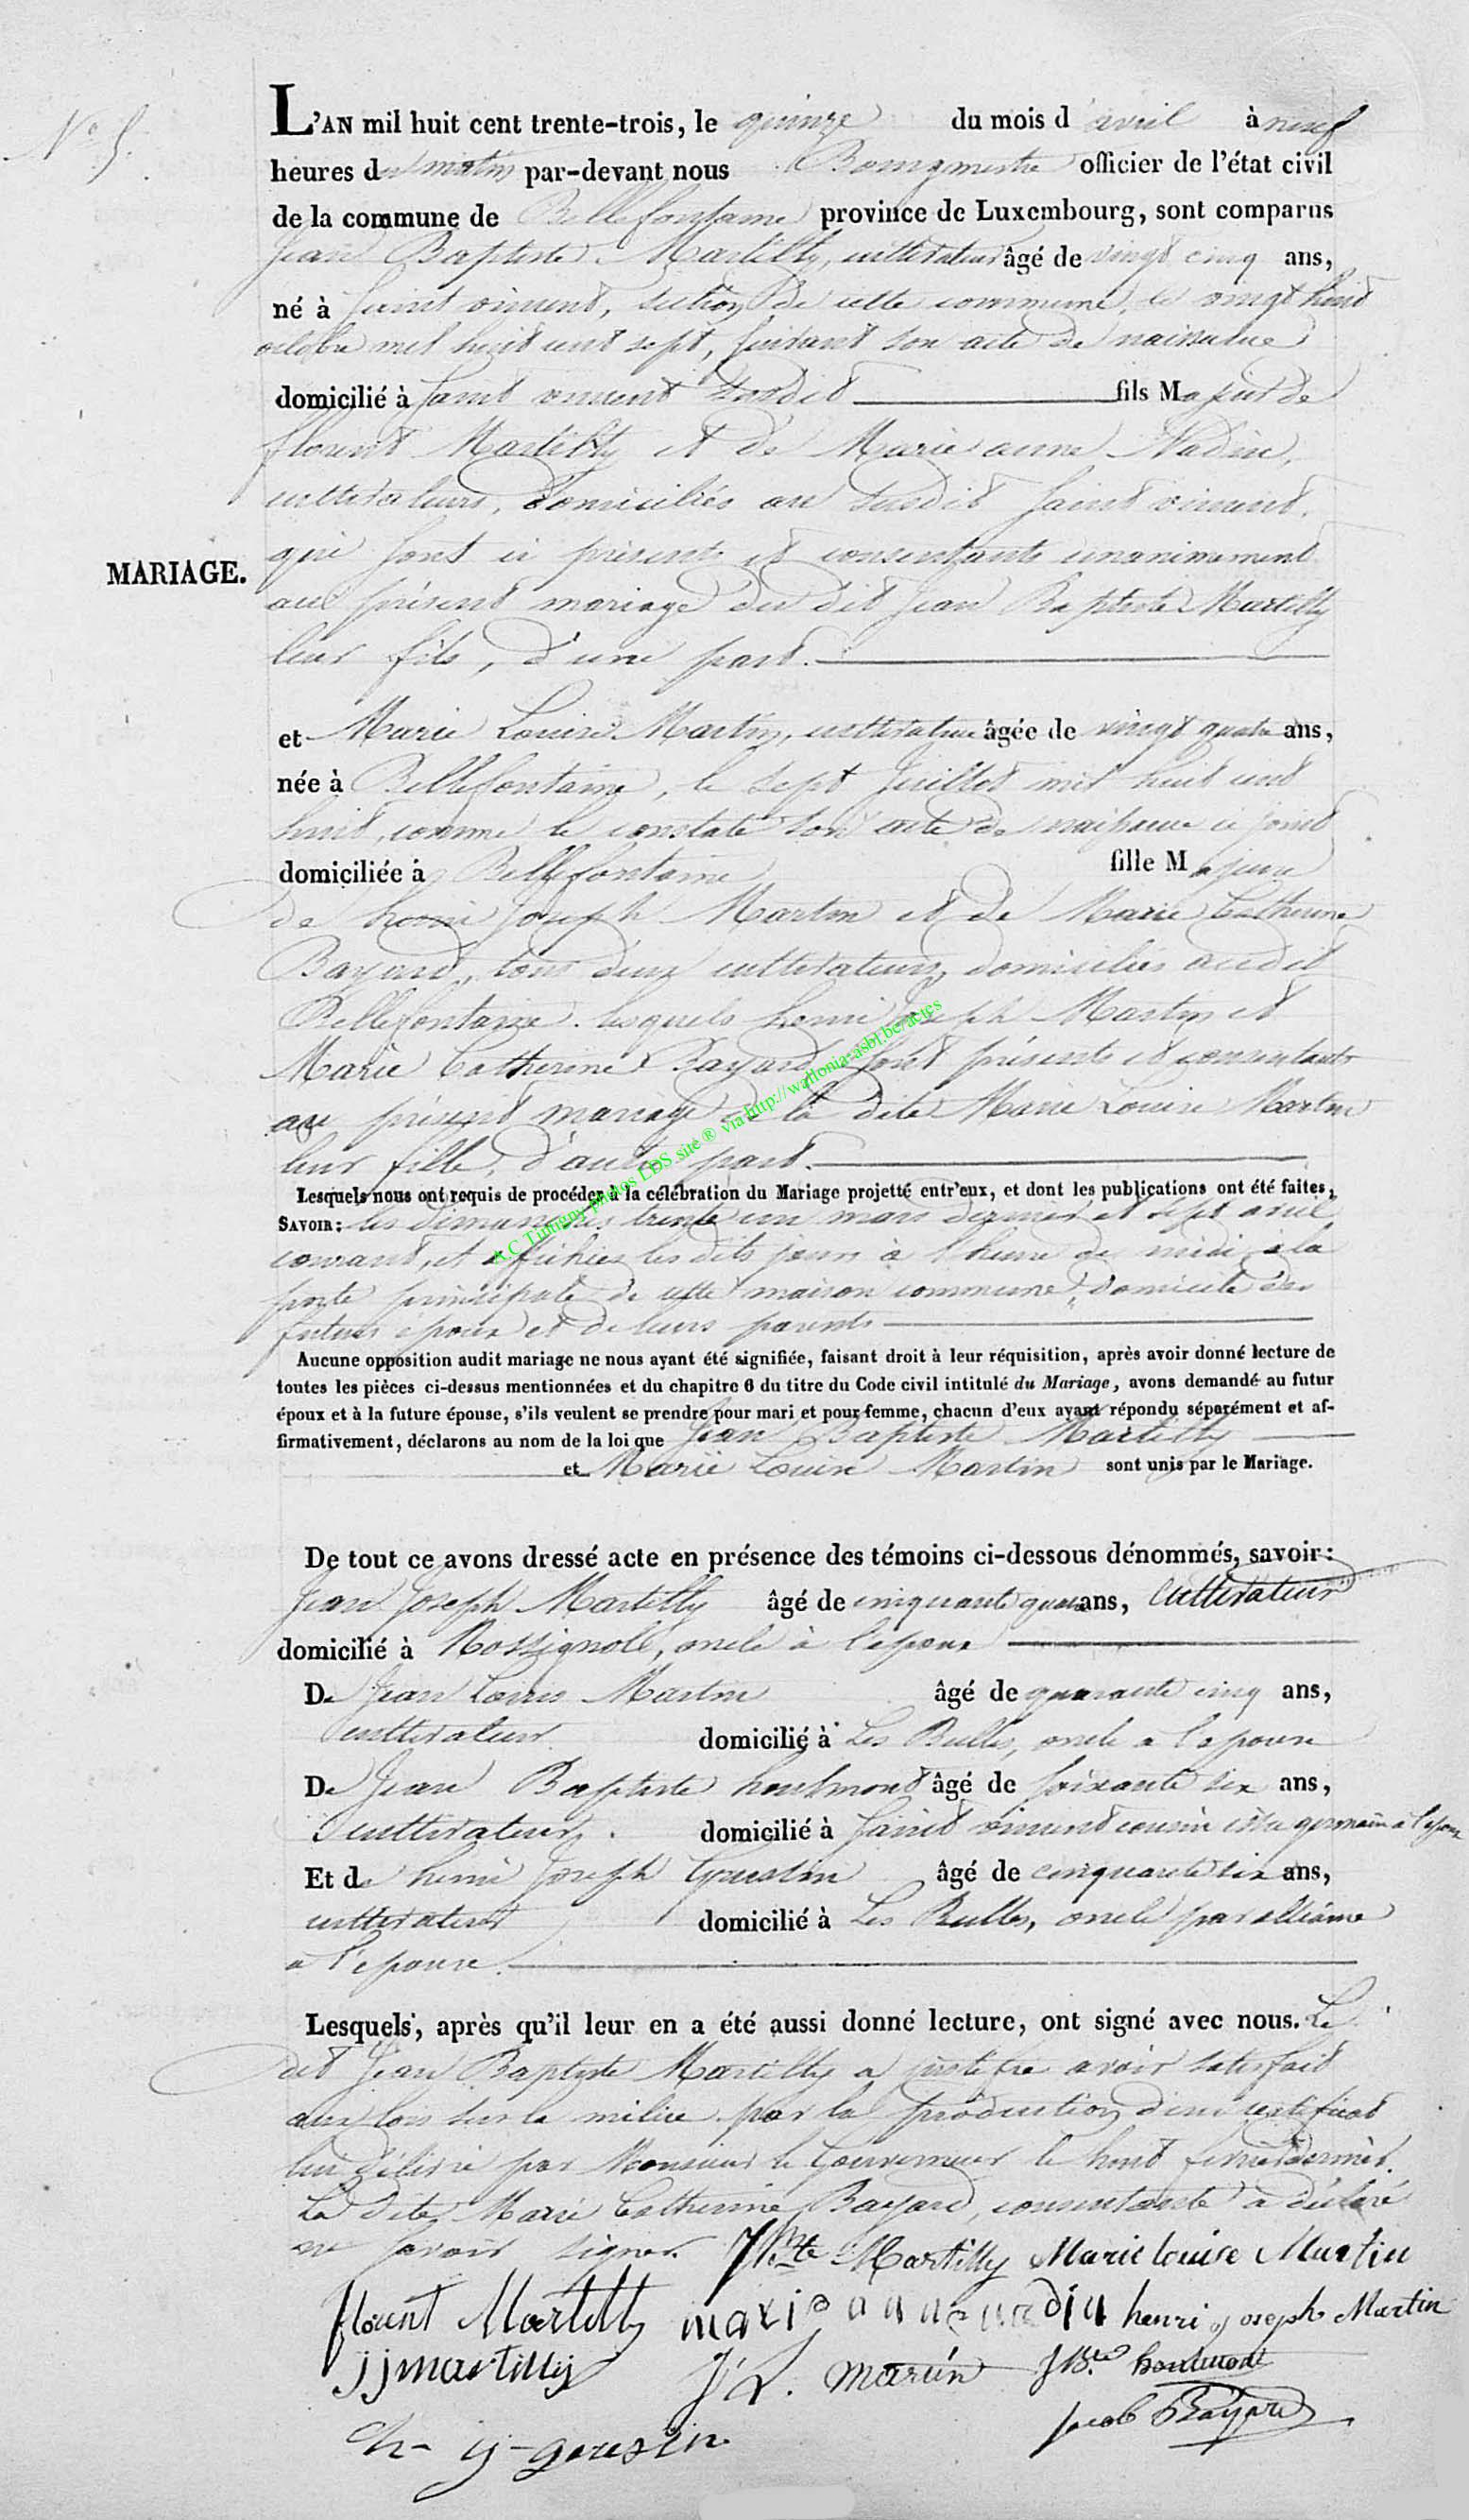 N° 5.
L'AN mil huit cent trente-trois, le quinze du mois d'avril à neuf
heures du matin par-devant nous Bourgmestre officier de l'état civil
de la commune de Bellefontaine province de Luxembourg, sont comparus
Jean Baptiste Martilly, cultivateur âgé de vingt cinq ans,
né à Saint vincent, section de cette commune, le vingt huit
octobre mil huit cent sept, suivant son acte de naissance
domicilié à Saint vincent susdit fils Majeur de
florent Martilly et de Marie anne Nadin,
cultivateurs, domiciliés au susdit Saint vincent,
qui sont ci présents et consentants unanimement
au présent mariage du dit Jean Baptiste Martilly
leur fils, d'une part.
MARIAGE.
et Marie Louise Martin, cultivatrice âgée de vingt quatre ans,
née à Bellefontaine, le sept Juillet mil huit cent
huit, comme le constate son acte de naissance ci joint
domiciliée à Bellefontaine fille Majeure
de henri Joseph Martin et de Marie Catherine
Bayard, tous deux cultivateurs, domiciliés audit
Bellefontaine. lesquels henri Joseph Martin et
Marie Catherine Bayard sont présents et consentants
au présent mariage de la dite Marie Louise Martin
leur fille, d'autre part.
A.C Tintigny photos LDS site ® via http://wallonia-asbl.be/actes
Lesquels nous ont requis de procéder à la célébration du Mariage projetté entr'eux, et dont les publications ont été faites,
SAVOIR: les dimanches trente un mars dernier et sept avril
courant, et affichées les dits jours à l'heure de midi à la
porte principale de cette maison commune, domicile des
futurs époux et de leurs parents
Aucune opposition audit mariage ne nous ayant été signifiée, faisant droit à leur réquisition, après avoir donné lecture de
toutes les pièces ci-dessus mentionnées et du chapitre 6 du titre du Code civil intitulé du Mariage, avons demandé au futur
époux et à la future épouse, s'ils veulent se prendre pour mari et pour femme, chacun d'eux ayant répondu séparément et af-
firmativement, déclarons au nom de la loi que Jean Baptiste Martilly
et Marie Louise Martin sont unis par le Mariage.
De tout ce avons dressé acte en présence des témoins ci-dessous dénommés, savoir:
Jean Joseph Martilly âgé de cinquante quatre ans, Cultivateur
domicilié à Rossignol, oncle à l'epoux
De Jean Louis Martin âgé de quarante cinq ans,
cultivateur domicilié à Les Bulles, oncle a l'epouse
De Jean Baptiste houlmont âgé de soixante six ans,
cultivateur. domicilié à Saint vincent cousin issu germain à l'epoux
Et de henri Joseph Goustin âgé de cinquante six ans,
cultivateur domicilié à Les Bulles, oncle par alliance
a l'epouse.
Lesquels, après qu'il leur en a été aussi donné lecture, ont signé avec nous. Le
dit Jean Baptiste Martilly a justifié avoir satisfait
aux lois sur la milice par la production d'un certificat
lui délivré par Monsieur le Gouverneur le huit fevrier dernier.
La dite Marie Catherine Bayard, consentante a déclaré
ne savoir signer. Martilly Marie louise Martin
florent Martilly marie anne nadin henri joseph Martin
j j martilly J. L. Martin J Bte houlmont
h- j- gousin Jacob Bayard